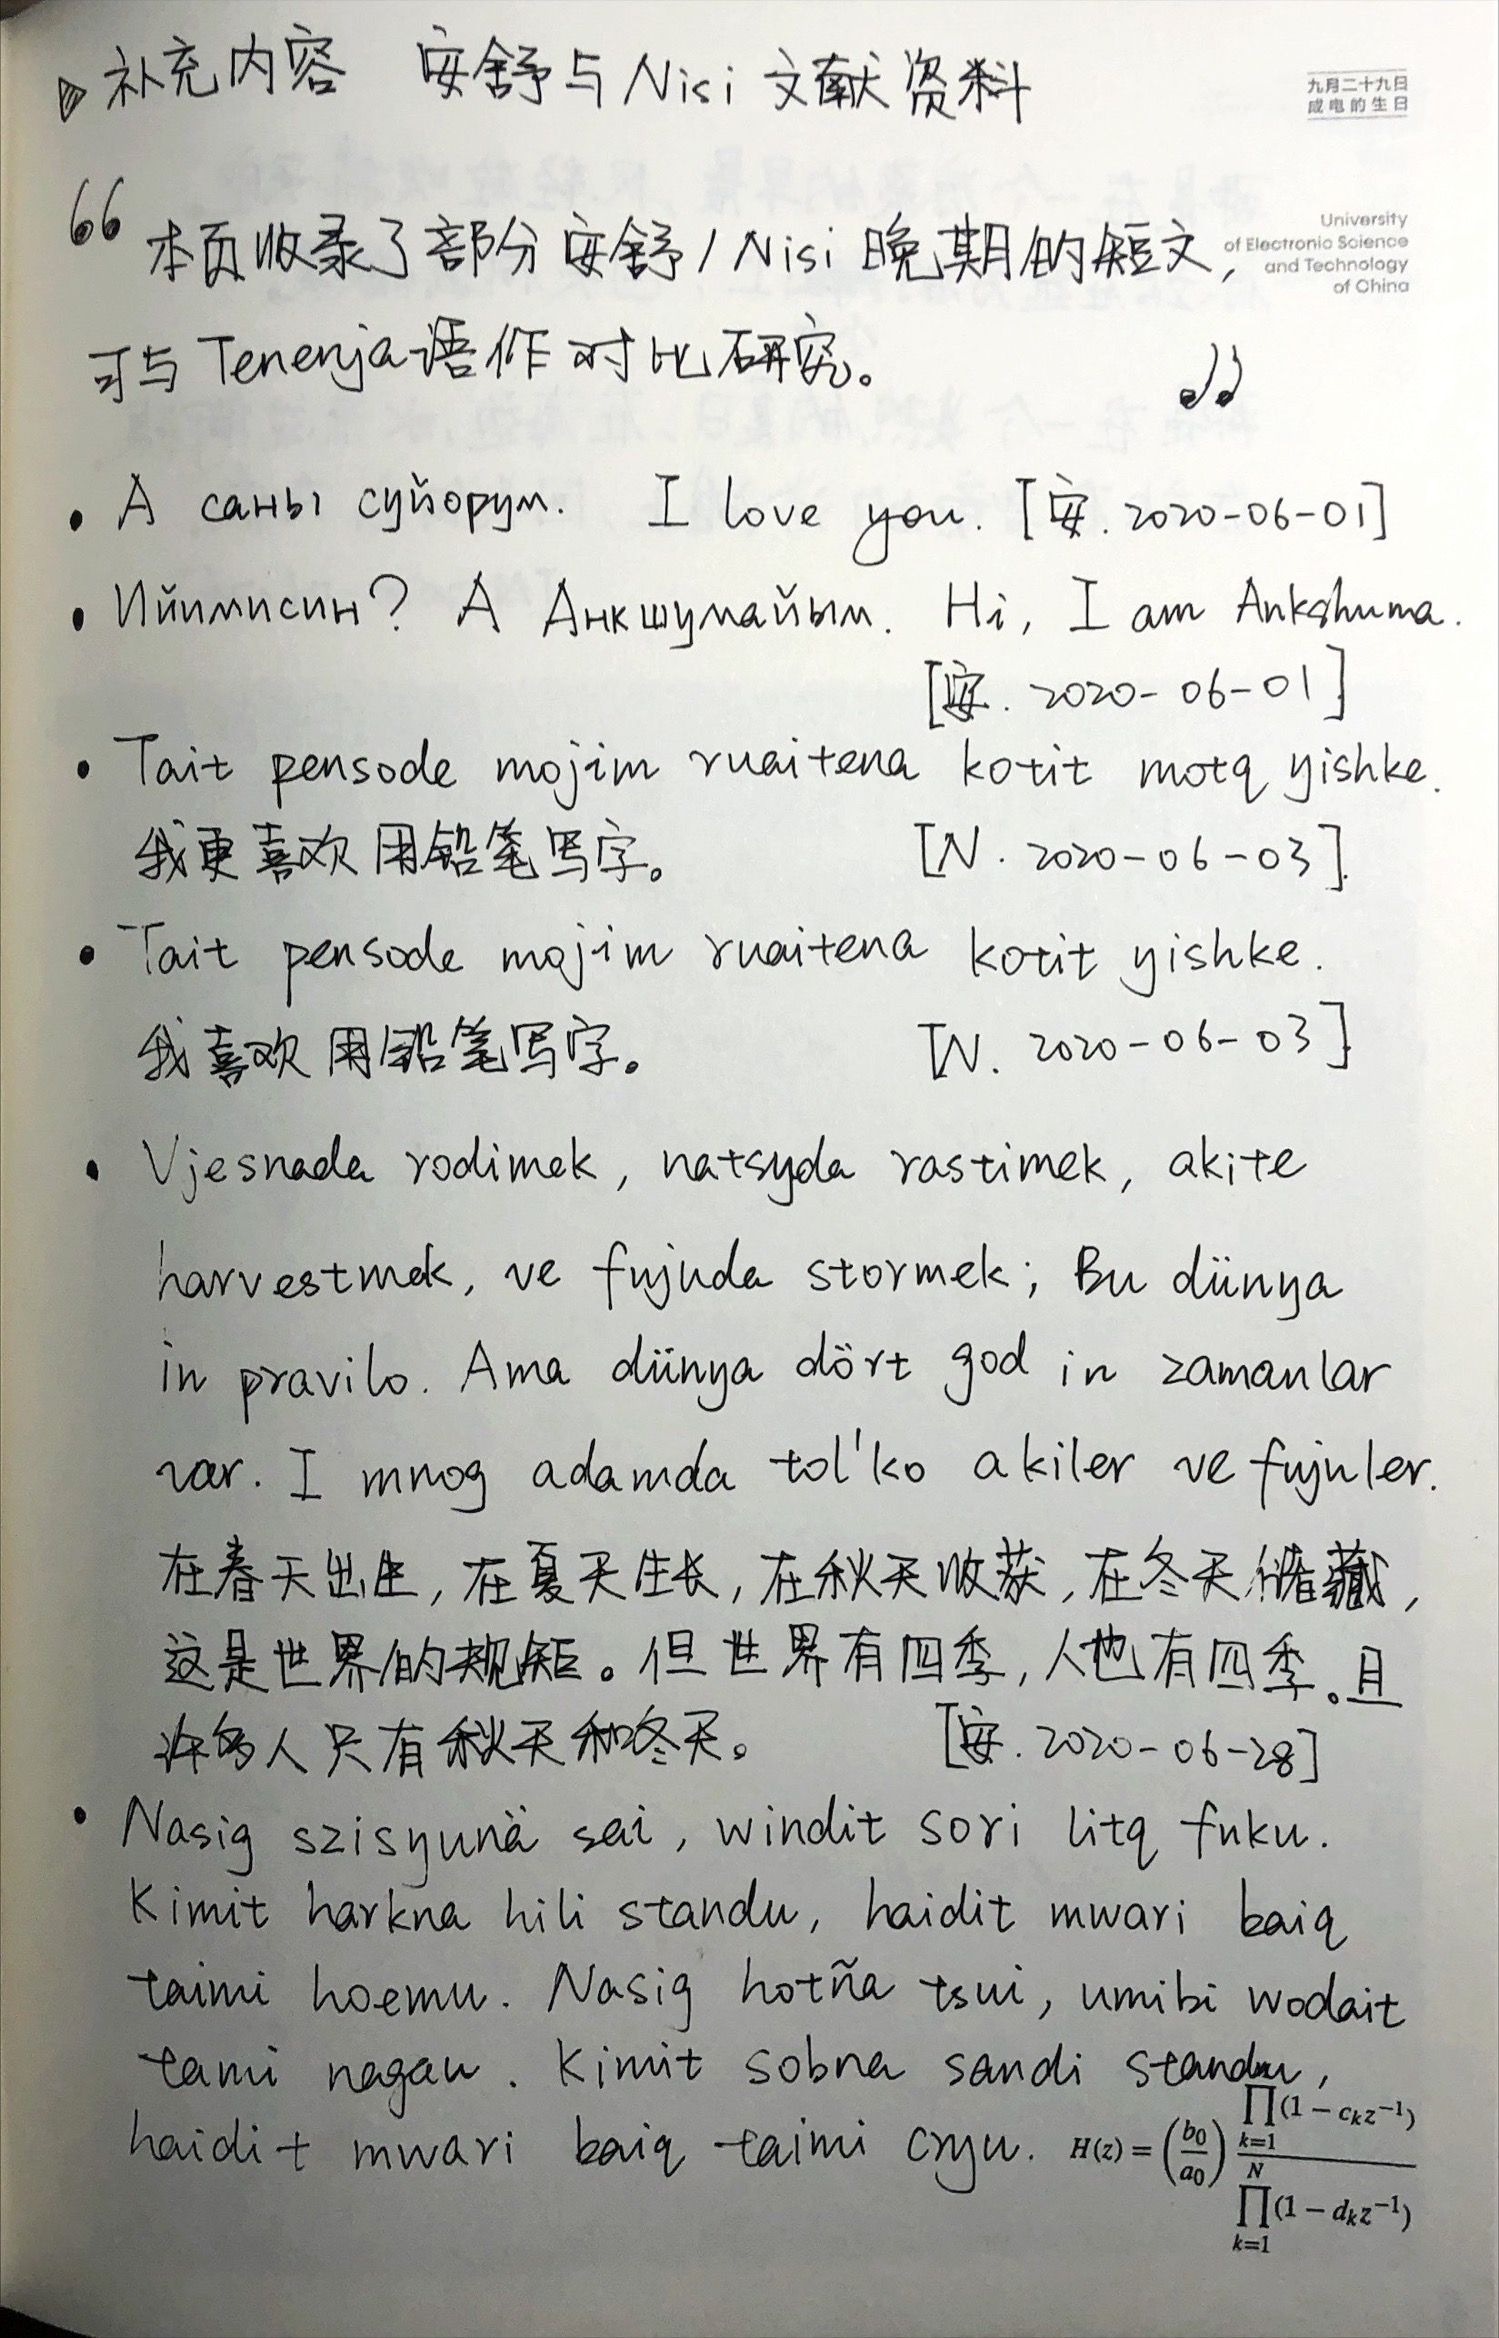 补充内容 安舒与Nisi文献资料
九月二十九日
成电的生日
University
of Electronic Science
and Technology
of China
“本页收录了部分安舒/Nisi晚期的短文,
可与Tenenja语作对比研究。
• А саны суйорум. I love you. [安. 2020-06-01]
• Ийимисин? А Анкшумайым. Hi, I am Ankshuma.
[安. 2020-06-01]
• Tait pensode mojim ruaitena kotit motq yishke.
我更喜欢用铅笔写字。 [N. 2020-06-03].
• Tait pensode mojim ruaitena kotit yishke.
我喜欢用铅笔写字。 [N. 2020-06-03]
• Vjesnada rodimek, natsyda rastimek, akite
harvestmek, ve fujuda stormek; Bu dünya
in pravilo. Ama dünya dört god in zamanlar
var. I mnog adamda tol'ko akiler ve fujuler.
在春天出生,在夏天生长,在秋天收获,在冬天储藏,
这是世界的规矩。但世界有四季,人也有四季。且
许多人只有秋天和冬天。 [安. 2020-06-28]
• Nasig szisyunä sai, windit sori litq fuku.
Kimit harkna hili standu, haidit mwari baiq
taimi hoemu. Nasig hotña tsui, umibi wodait
tami nagau. Kimit sobna sandi standu,
haidit mwari baiq taimi cryu.
H(z) = (b₀/a₀) ∏ₖ₌₁(1 − cₖz⁻¹) / ∏ₖ₌₁ᴺ(1 − dₖz⁻¹)